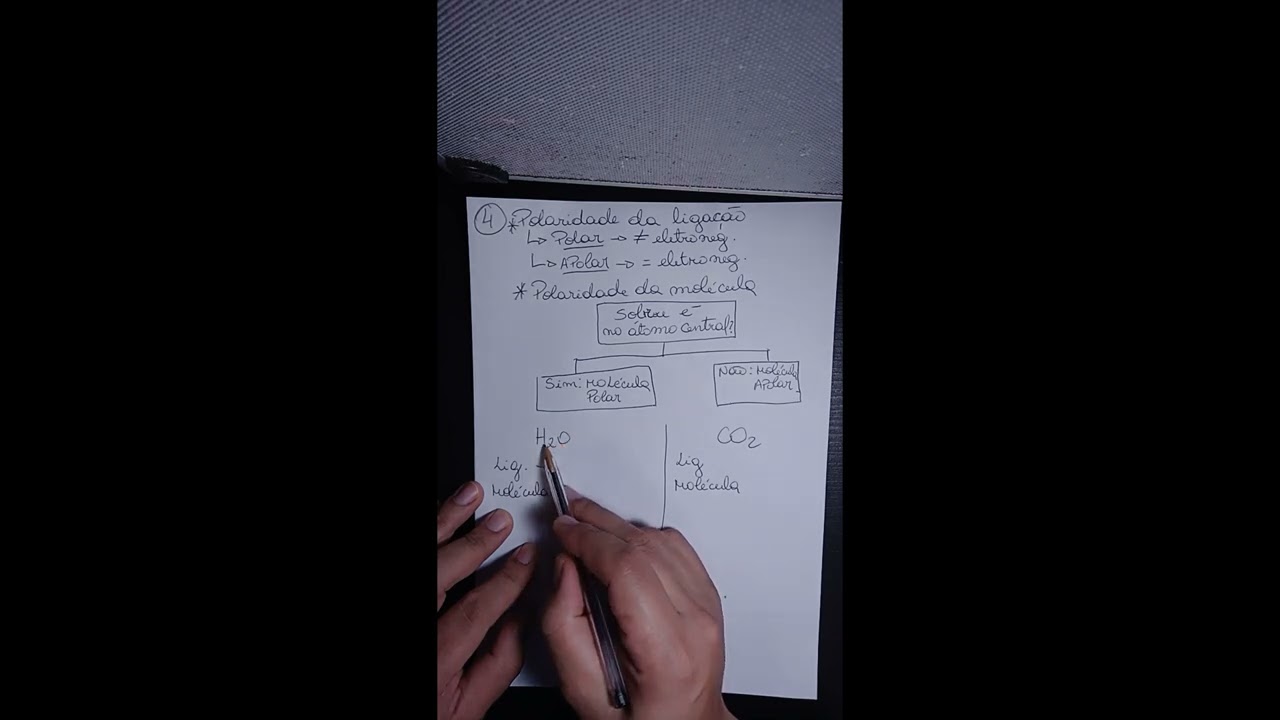 4 * Polaridade da ligação
↳ Polar → ≠ eletroneg.
↳ APolar → = eletroneg.
* Polaridade da molécula
Sobra e⁻
no átomo central?
Sim: Molécula
Polar
Não: Molécula
APolar
H₂O
Lig. -
Molécula
CO₂
Lig
Molécula